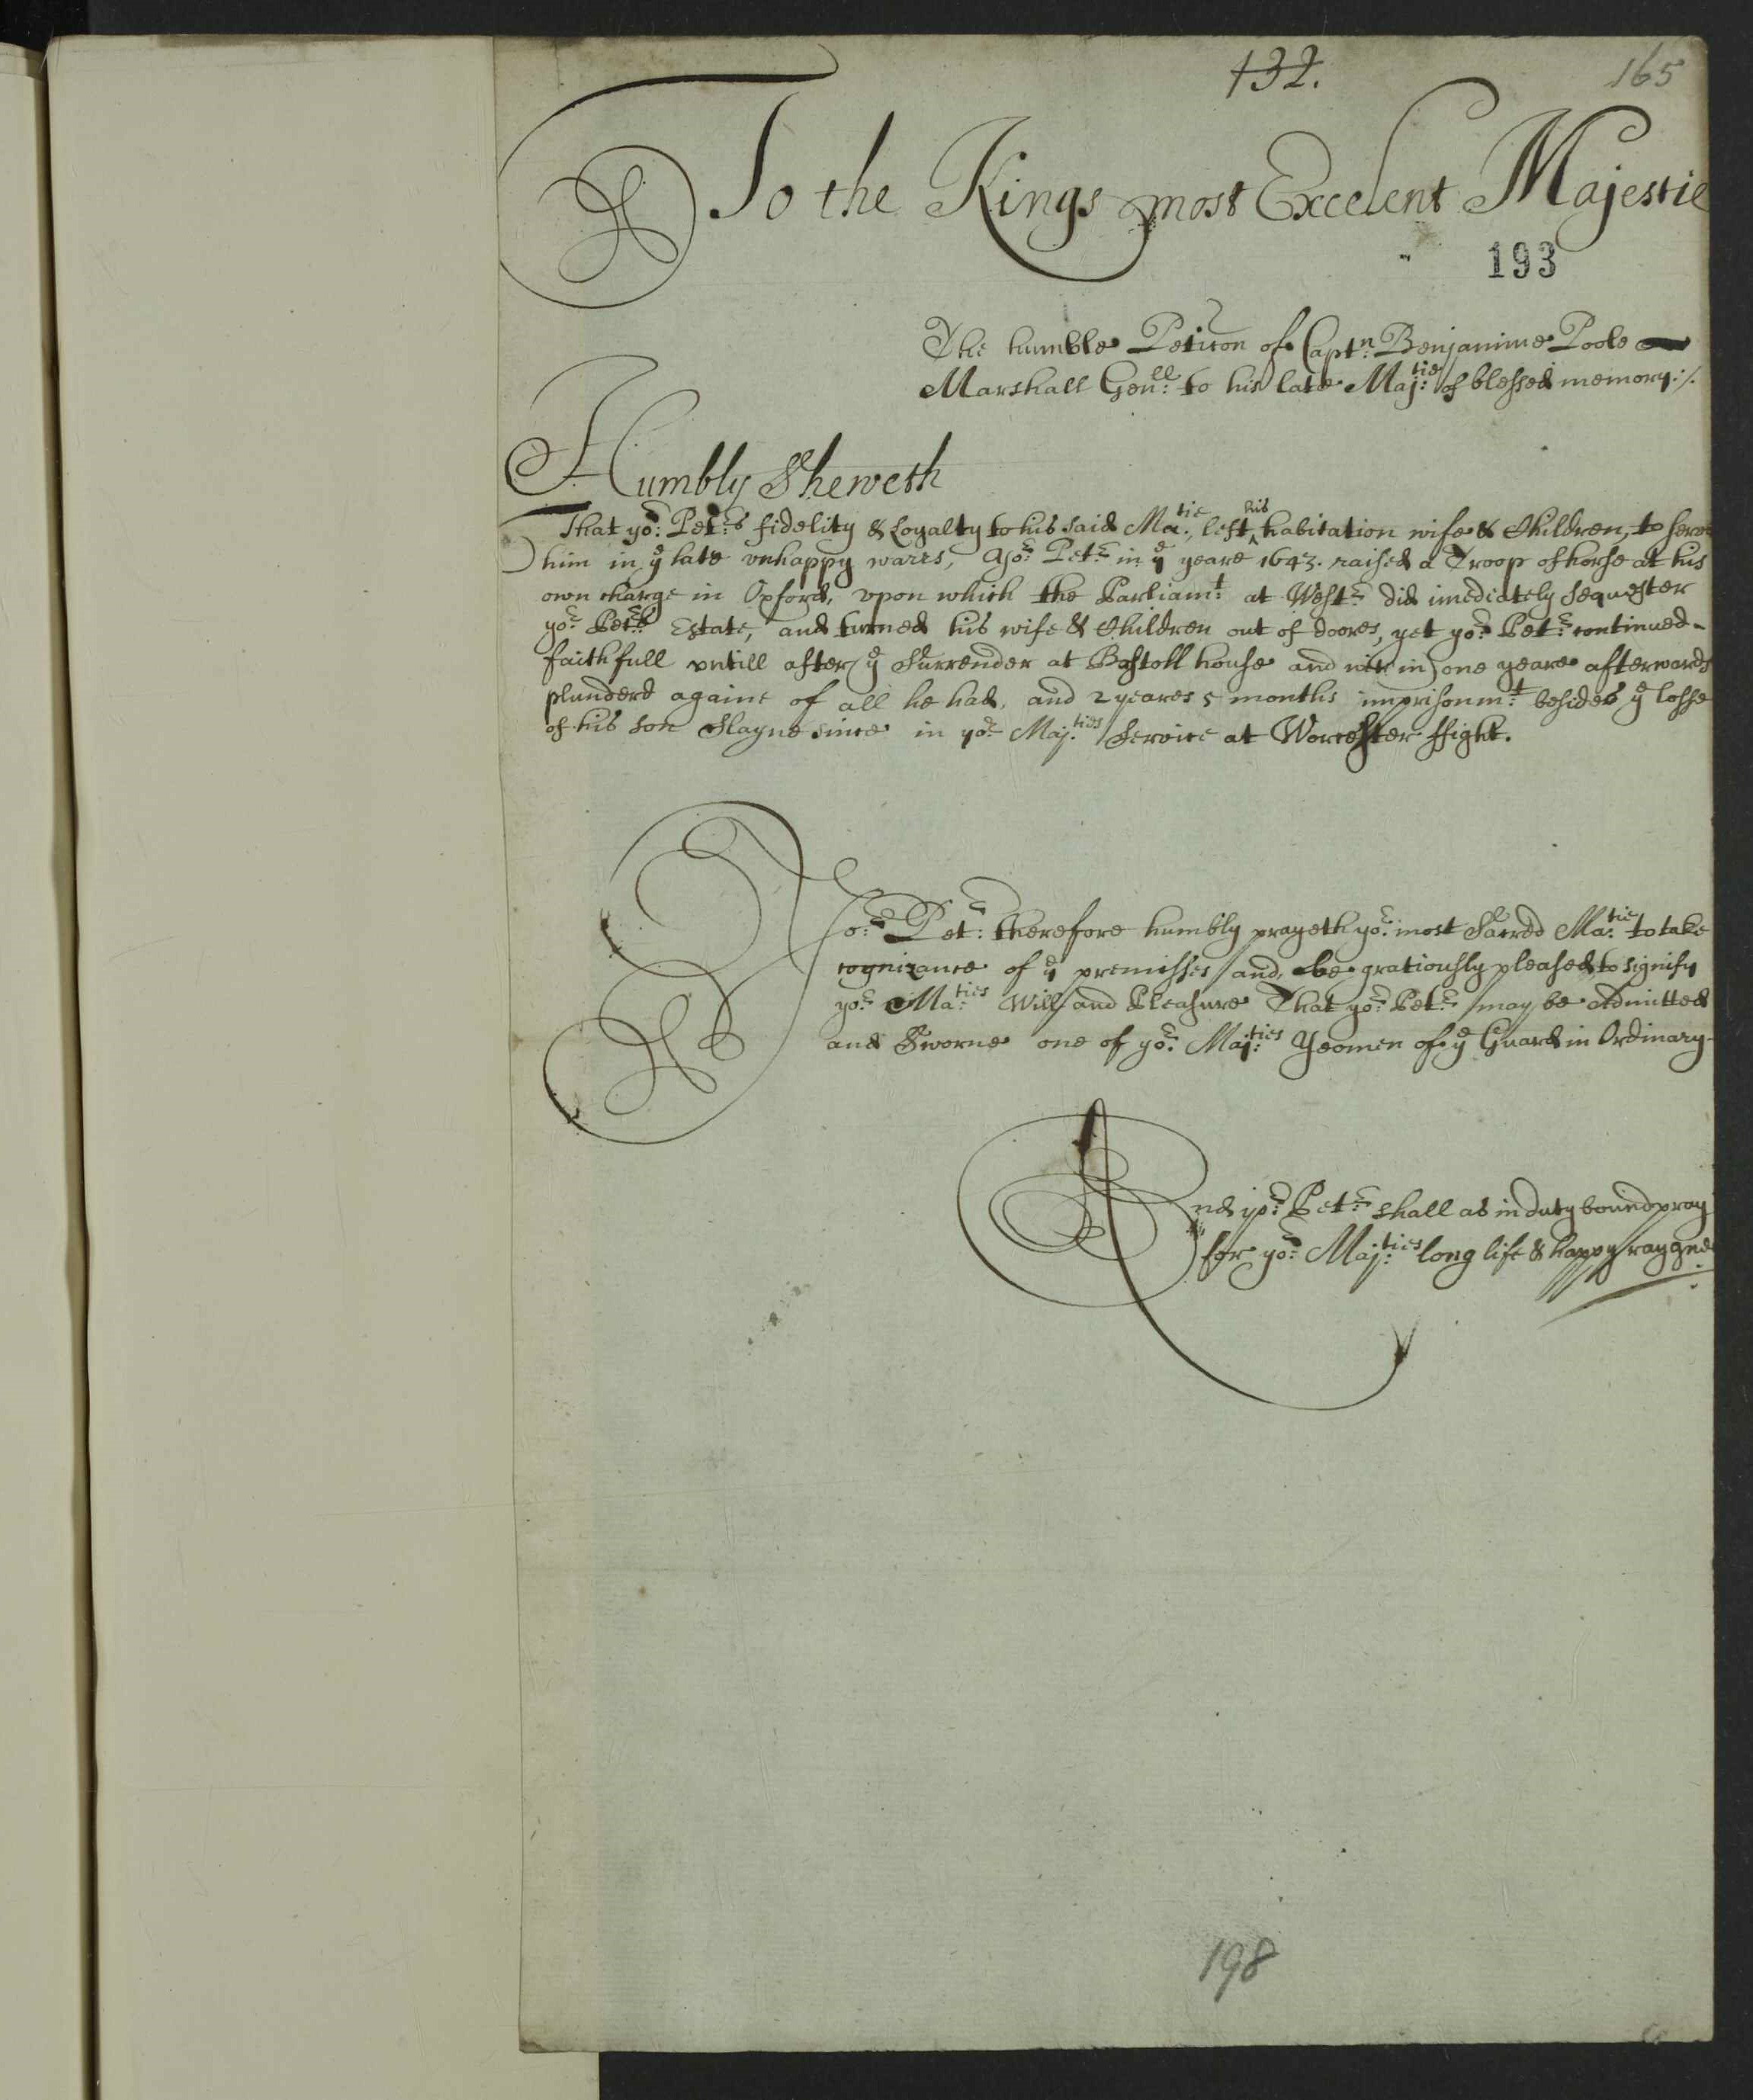 132.
165
To the Kings most Excelent Majestie
193
The humble Peticon of Captn: Benjamine Poole
Marshall Genll: to his late Majtie: of blessed memory:/.
Humbly Sheweth
That yor: Petrs: fidelity & Loyalty to his said Matie: left his habitation wife & Children, to serve
him in ye late vnhappy warrs, Yor: Petr: in ye yeare 1643. raised a Troop of horse at his
own charge in Oxford, vpon which the Parliamt: at Westr: did imediately sequester
yor: Petrs: Estate, and turned his wife & Children out of doores, yet yor: Petr: continued-
faithfull vntill after ye Surrender at Bostoll house and within one yeare afterwards
plunderd againe of all he had, and 2 yeares 5 months imprisonmt: besides ye losse
of his son Slayne since in yor: Majties: Service at Worcester ffight.
Yor: Petr: therefore humbly prayeth yor: most Sacred Matie: to take
cognizance of ye premisses and, be gratiously pleased to signify
yor: Maties: Will and Pleasure That yor: Petr: may be Admitted
and Sworne one of yor: Majties: Yeomen of ye Guard in Ordinary-
And yor: Petr: shall as in duty bound pray
for yor: Majties: long life & happy raygne
198